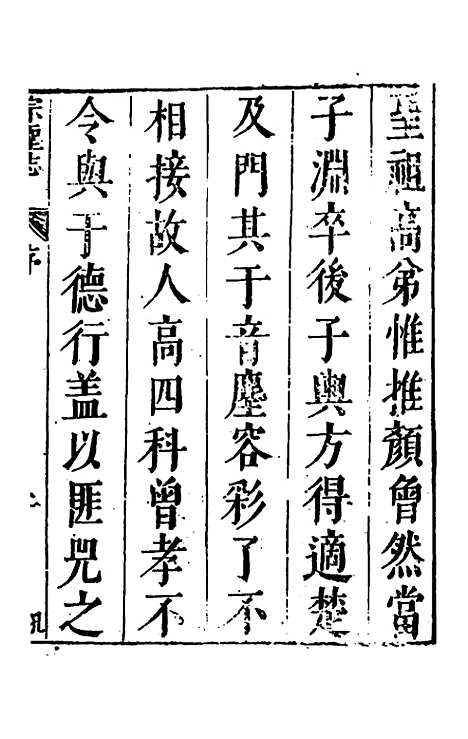 聖祖高弟惟推顏曾然當
子淵卒後子輿方得適楚
及門其于音塵容彩了不
相接故人高四科曾孝不
令與于德行盖以匪兕之
宗聖志 序